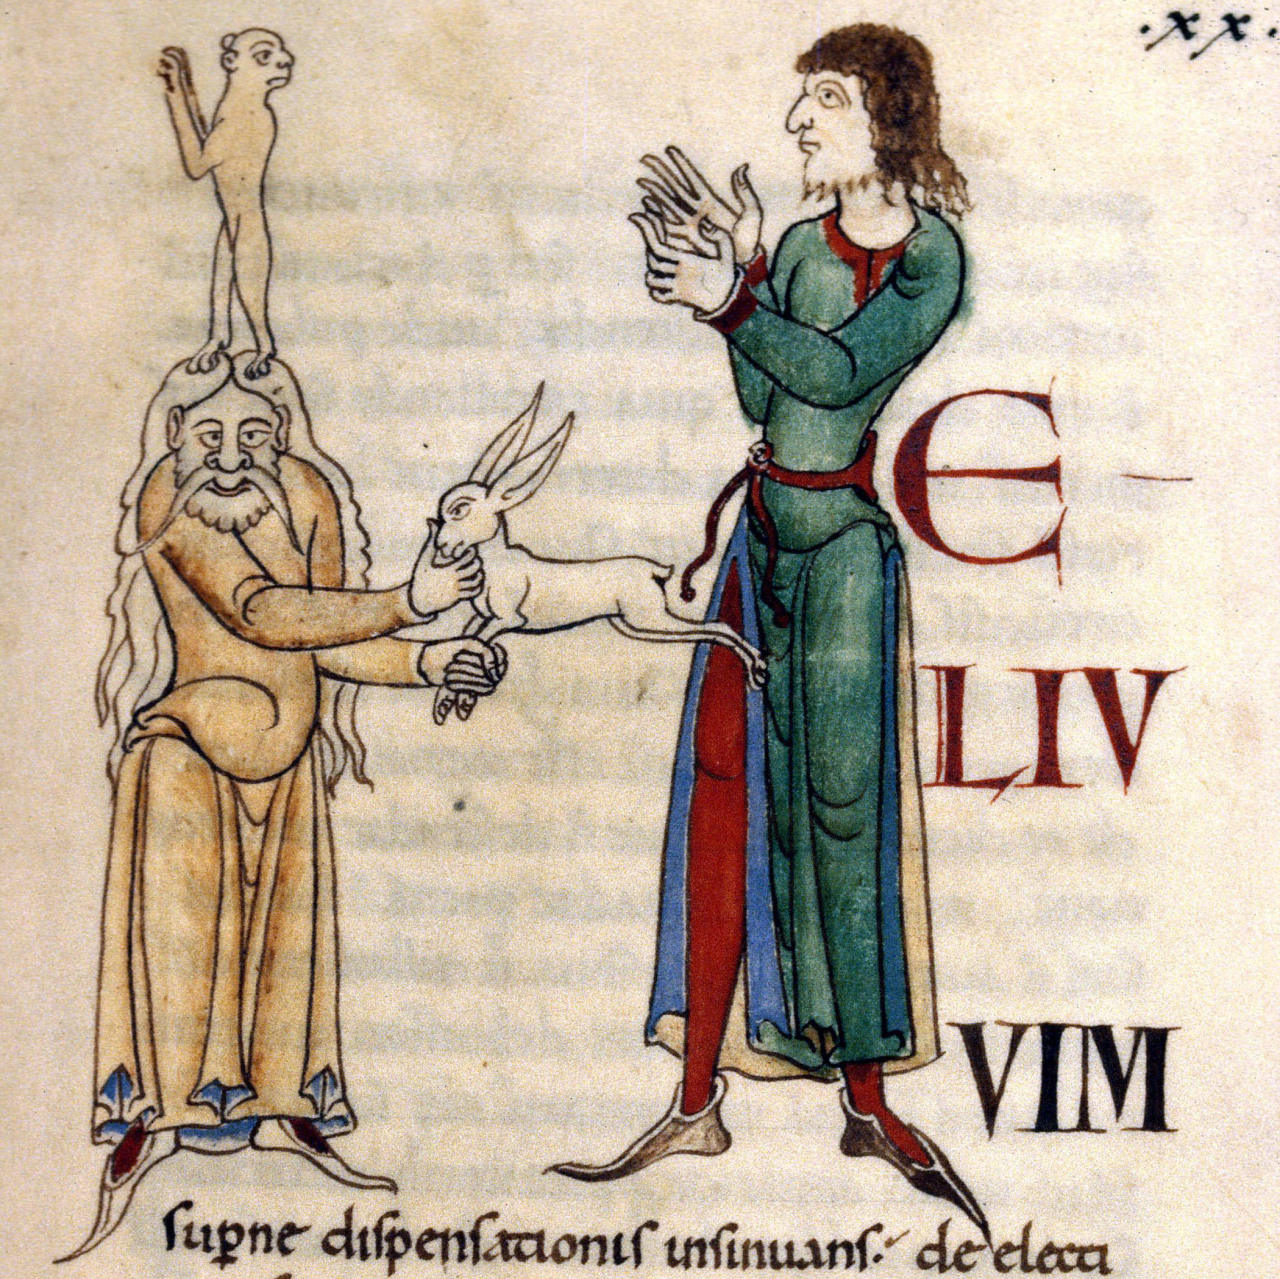 .xx.
E
LIV
VIM
sup̲ne dispensationis insinuans. de electi